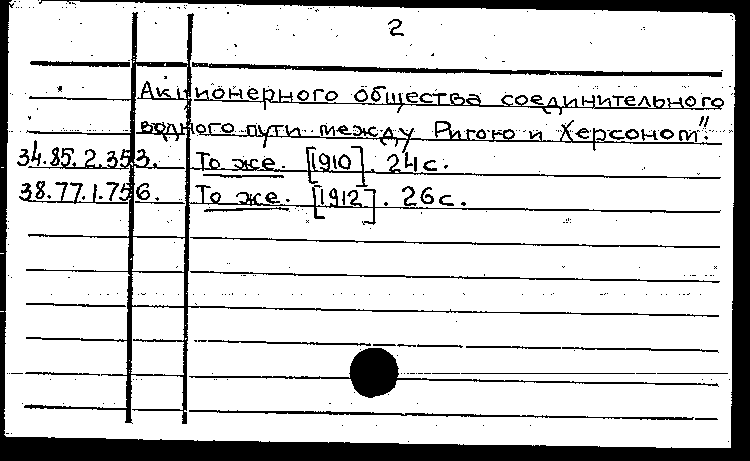 2
Акционерного общества соединительного
водного пути между Ригою и Херсоном".
34.85.2.353. То же. [1910]. 24с.
38.77.1.756. То же. [1912]. 26с.